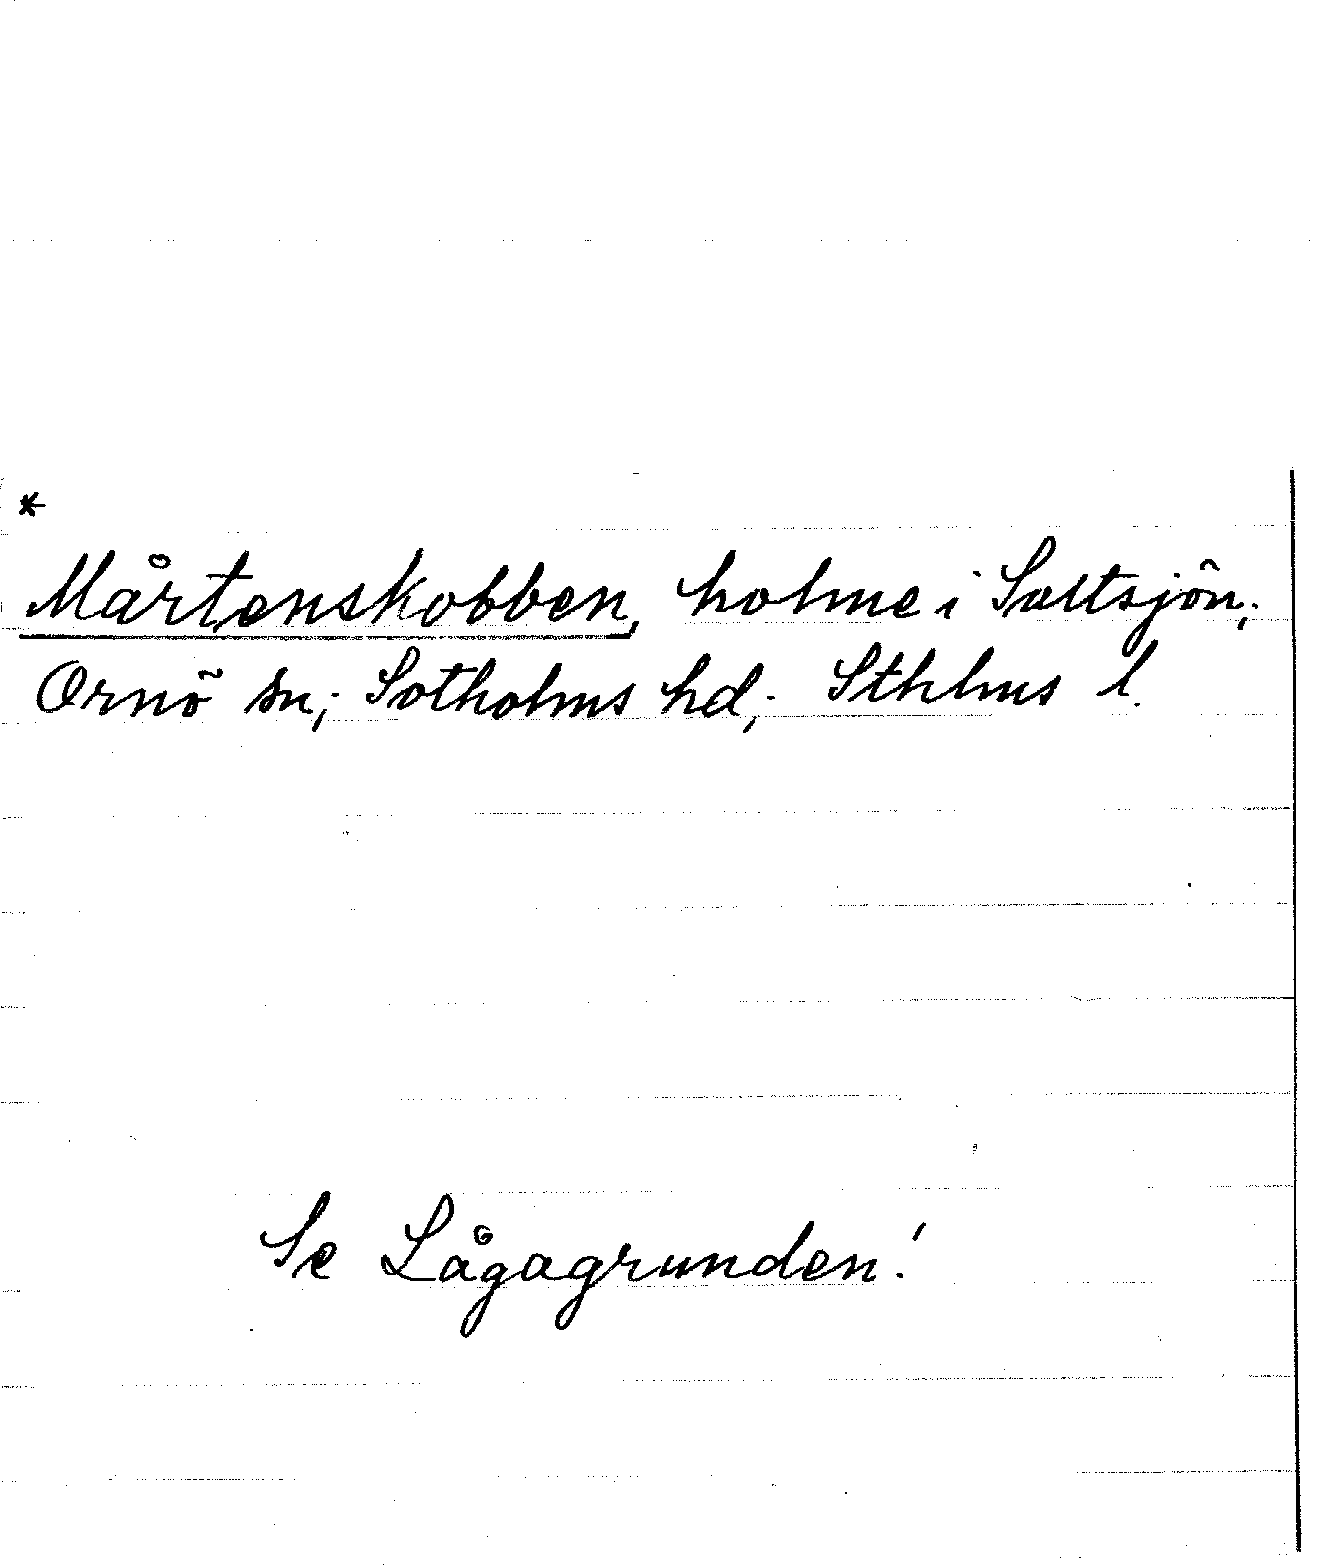 *
Mårtenskobben, holme i Saltsjön;
Ornö sn; Sotholms hd; Sthlms l.
Se Lågagrunden!